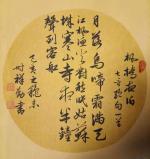 楓橋夜泊
七言絕句一首
月落烏啼霜滿天
江楓漁火對愁眠姑蘇
城外寒山寺夜半鐘
聲到客船
乙亥之
書